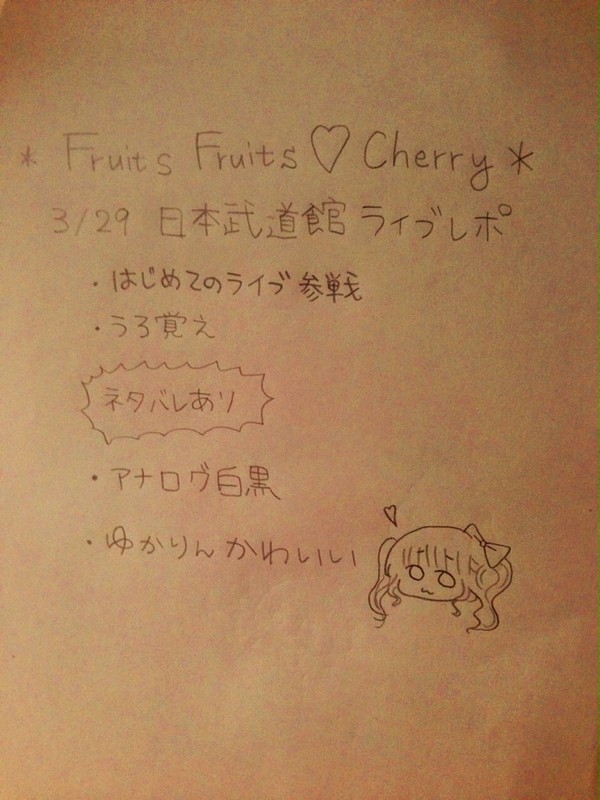 * Fruits Fruits♡Cherry *
3/29 日本武道館 ライブレポ
・はじめてのライブ参戦
・うろ覚え
ネタバレあり
・アナログ白黒
・ゆかりんかわいい